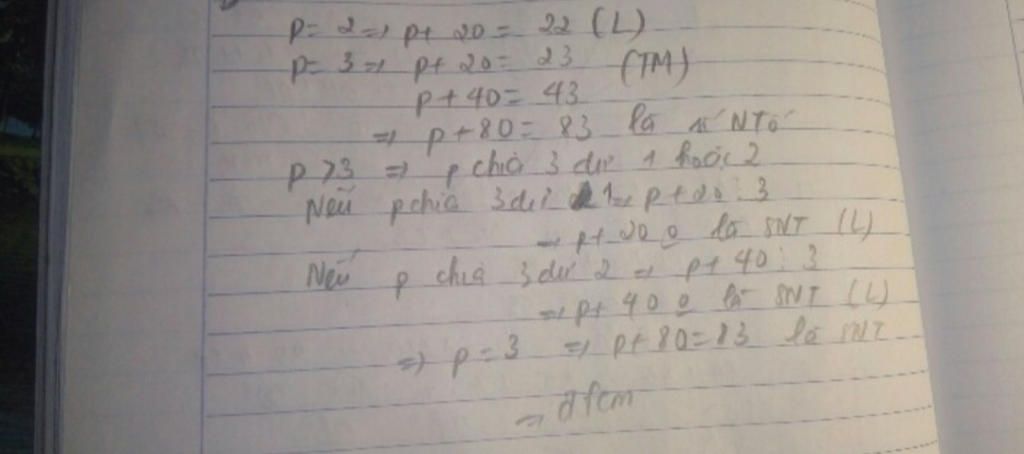 p = 2 => p + 20 = 22 (L)
p = 3 => p + 20 = 23 (TM)
p + 40 = 43
=> p + 80 = 83 là số NTố
p > 3 => p chia 3 dư 1 hoặc 2
Nếu p chia 3 dư 1 => p + 20 ⋮ 3
=> p + 20 o là SNT (L)
Nếu p chia 3 dư 2 => p + 40 ⋮ 3
=> p + 40 o là SNT (L)
=> p = 3 => p + 80 = 83 là SNT
=> đfcm